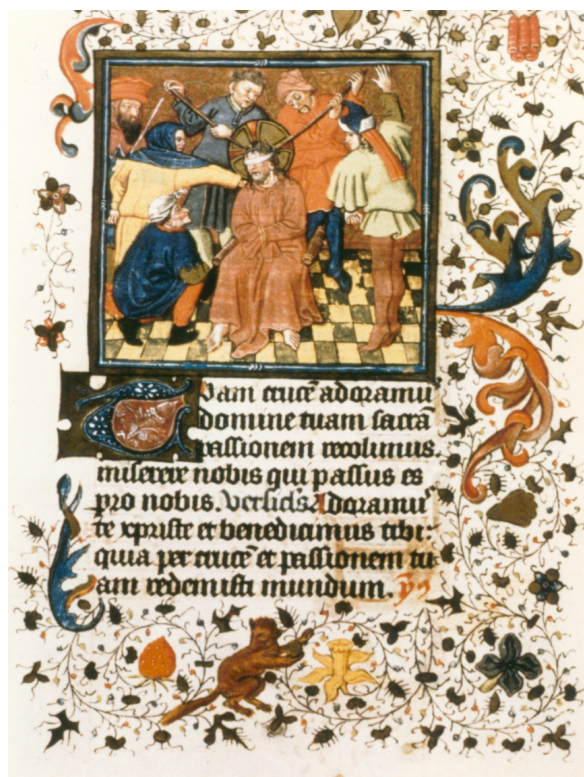 Tuam crucē adoramu᷒
domine tuam sacrā
passionem recolimus.
miserere nobis qui passus es
pro nobis. Versicls̄ Adoramu᷒
te xpriste et benedicimus tibi:
quia per crucē et passionem tu
am redemisti mundum.